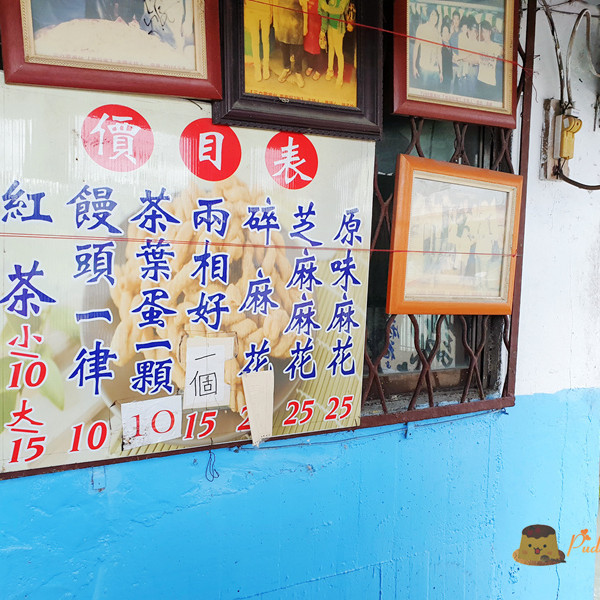 價目表
原味麻花 25
芝麻麻花 25
碎麻花 2
兩相好 一個 15
茶葉蛋一顆 10
饅頭一律 10
紅茶 小10 大15
Pud